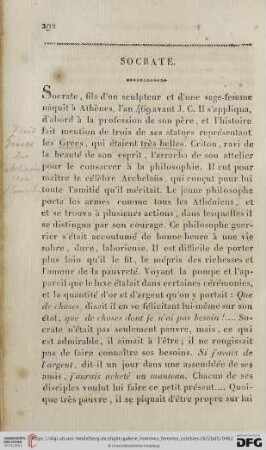 292
SOCRATE.
Socrate, fils d'un sculpteur et d'une sage-femme
nâquit à Athènes, l'an 469 avant J. C. Il s'appliqua,
d'abord à la profession de son père, et l'histoire
fait mention de trois de ses statues représentant
les Grâces, qui étaient très belles. Criton, ravi de
la beauté de son esprit, l'arracha de son attelier
pour le consacrer à la philosophie. Il eut pour
maître le célèbre Archelaüs qui conçut pour lui
toute l'amitié qu'il méritait. Le jeune philosophe
porta les armes comme tous les Athéniens, et
et se trouva à plusieurs actions, dans lesquelles il
se distingua par son courage. Ce philosophe guer-
rier s'était accoutumé de bonne heure à une vie
sobre, dure, laborieuse. Il est difficile de porter
plus loin qu'il le fit, le mépris des richesses et
l'amour de la pauvreté. Voyant la pompe et l'ap-
pareil que le luxe étalait dans certaines cérémonies,
et la quantité d'or et d'argent qu'on y portait : Que
de choses, disait il en se félicitant lui-même sur son
état, que de choses dont je n'ai pas besoin !.... So-
crate n'était pas seulement pauvre, mais, ce qui
est admirable, il aimait à l'être ; il ne rougissait
pas de faire connaître ses besoins. Si j'avais de
l'argent, dit-il un jour dans une assemblée de ses
amis, j'aurais acheté un manteau. Chacun de ses
disciples voulut lui faire ce petit présent.... Quoi-
que très pauvre, il se piquait d'être propre sur lui
https://digi.ub.uni-heidelberg.de/diglit/galerie_hommes_femmes_celebres1822bd1/0462
DFG